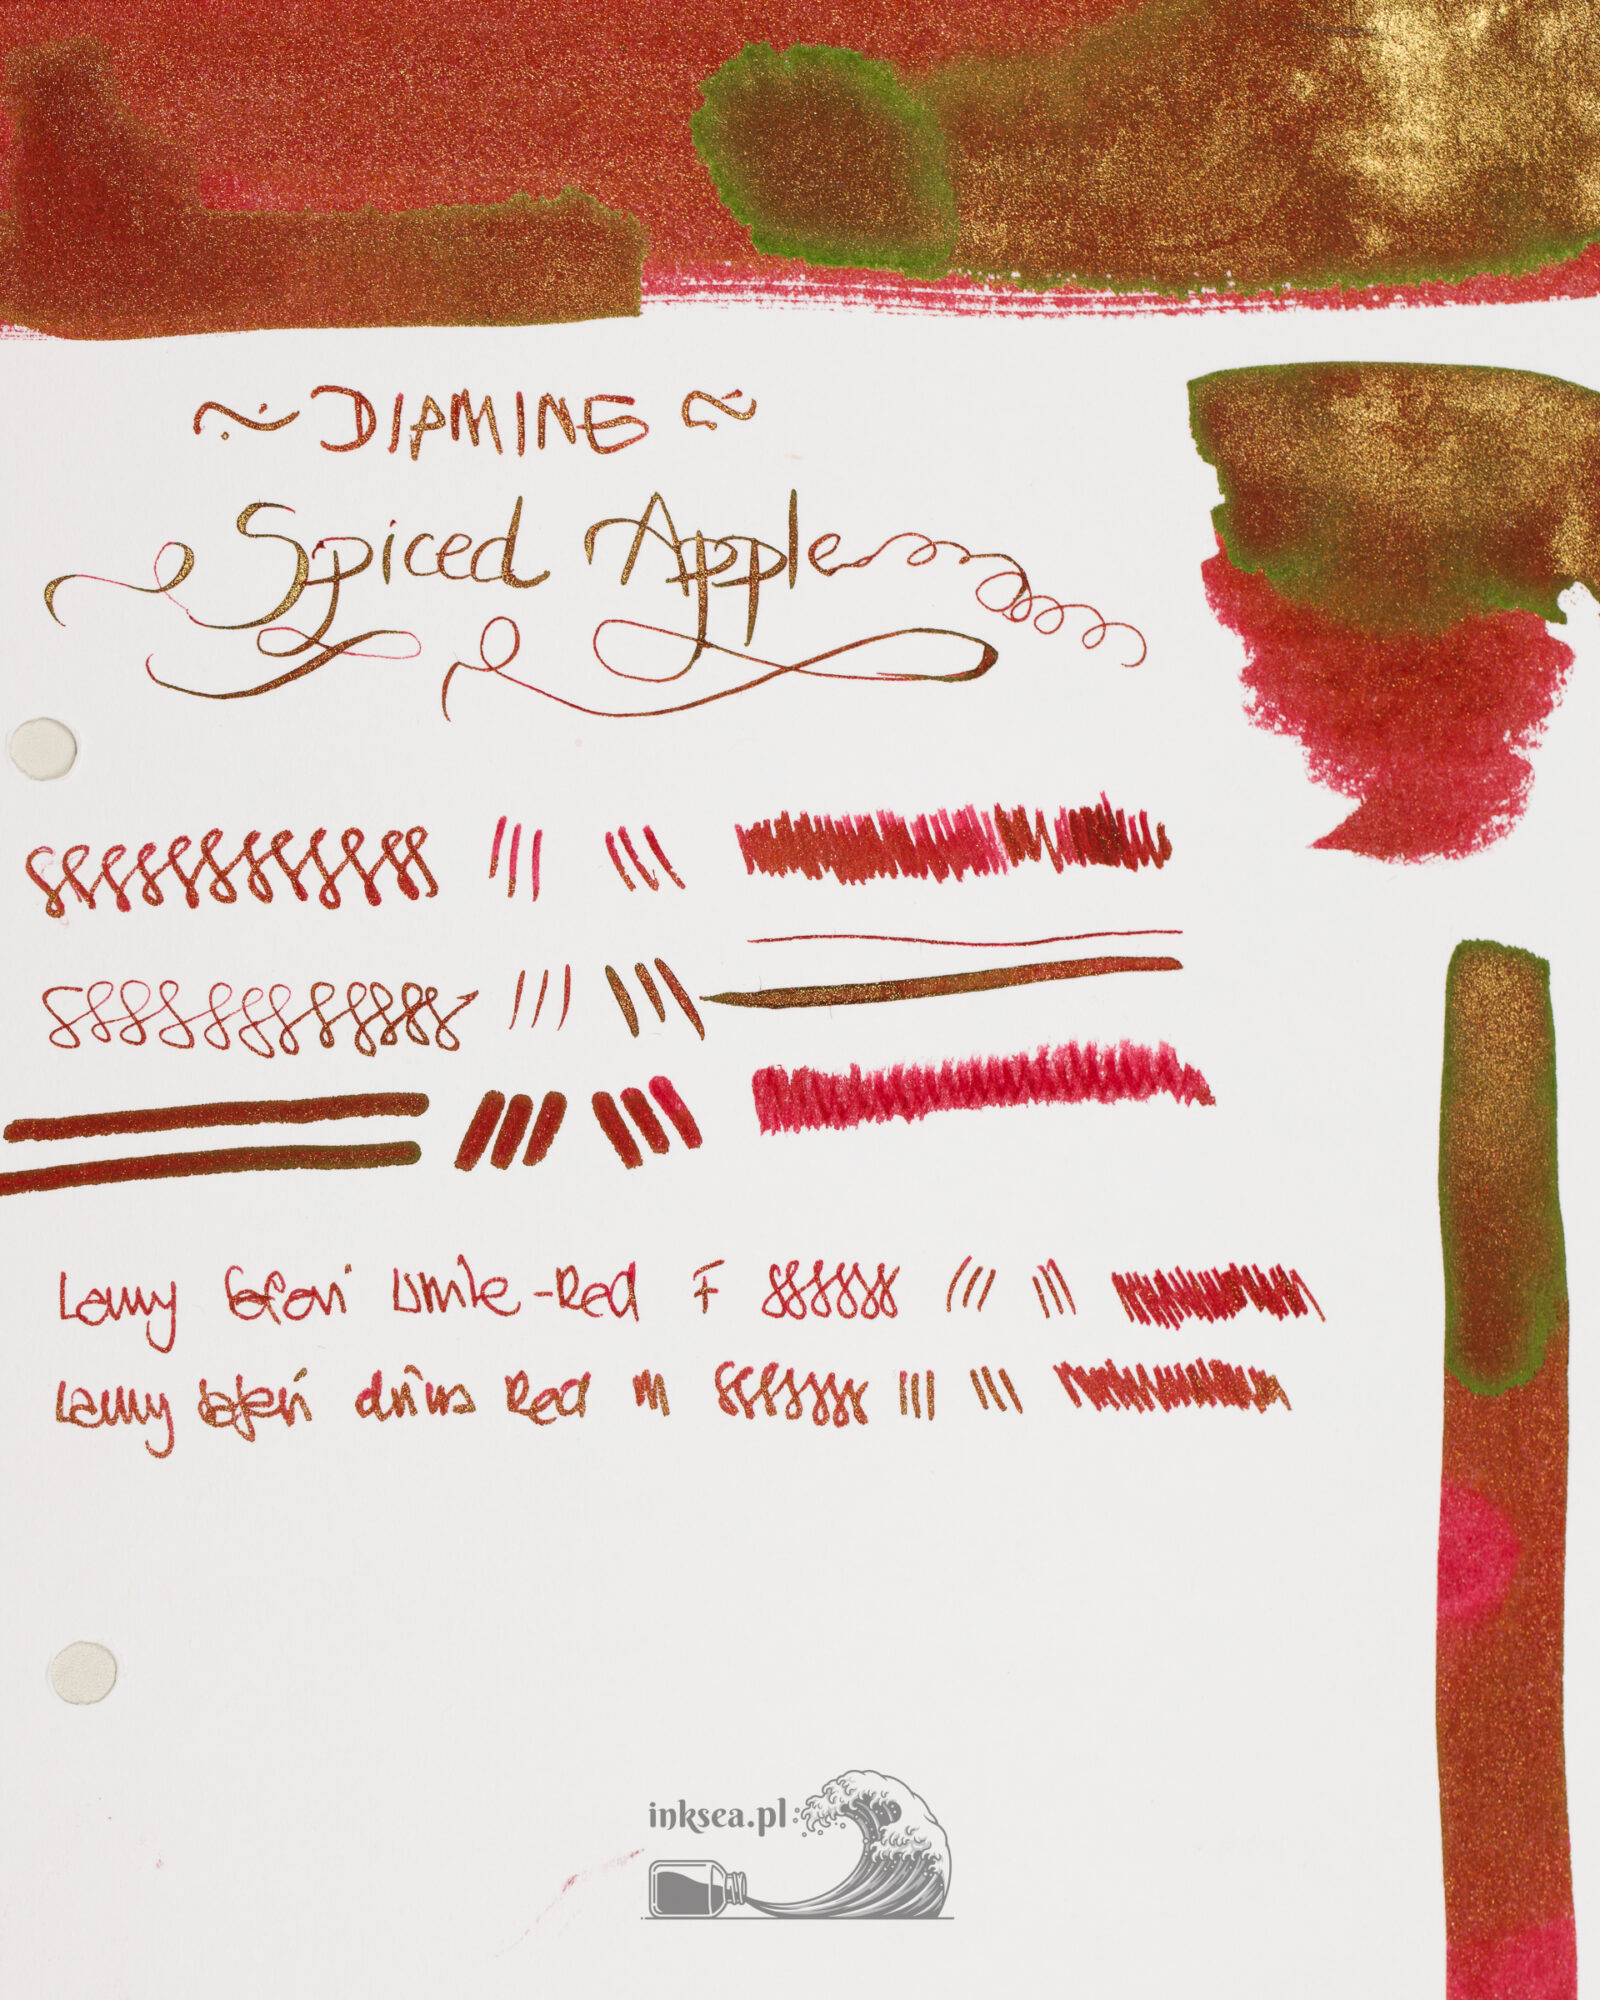 ~ DIAMINE ~
Spiced Apple
Lamy Safari White-Red F
Lamy Safari Red M
inksea.pl